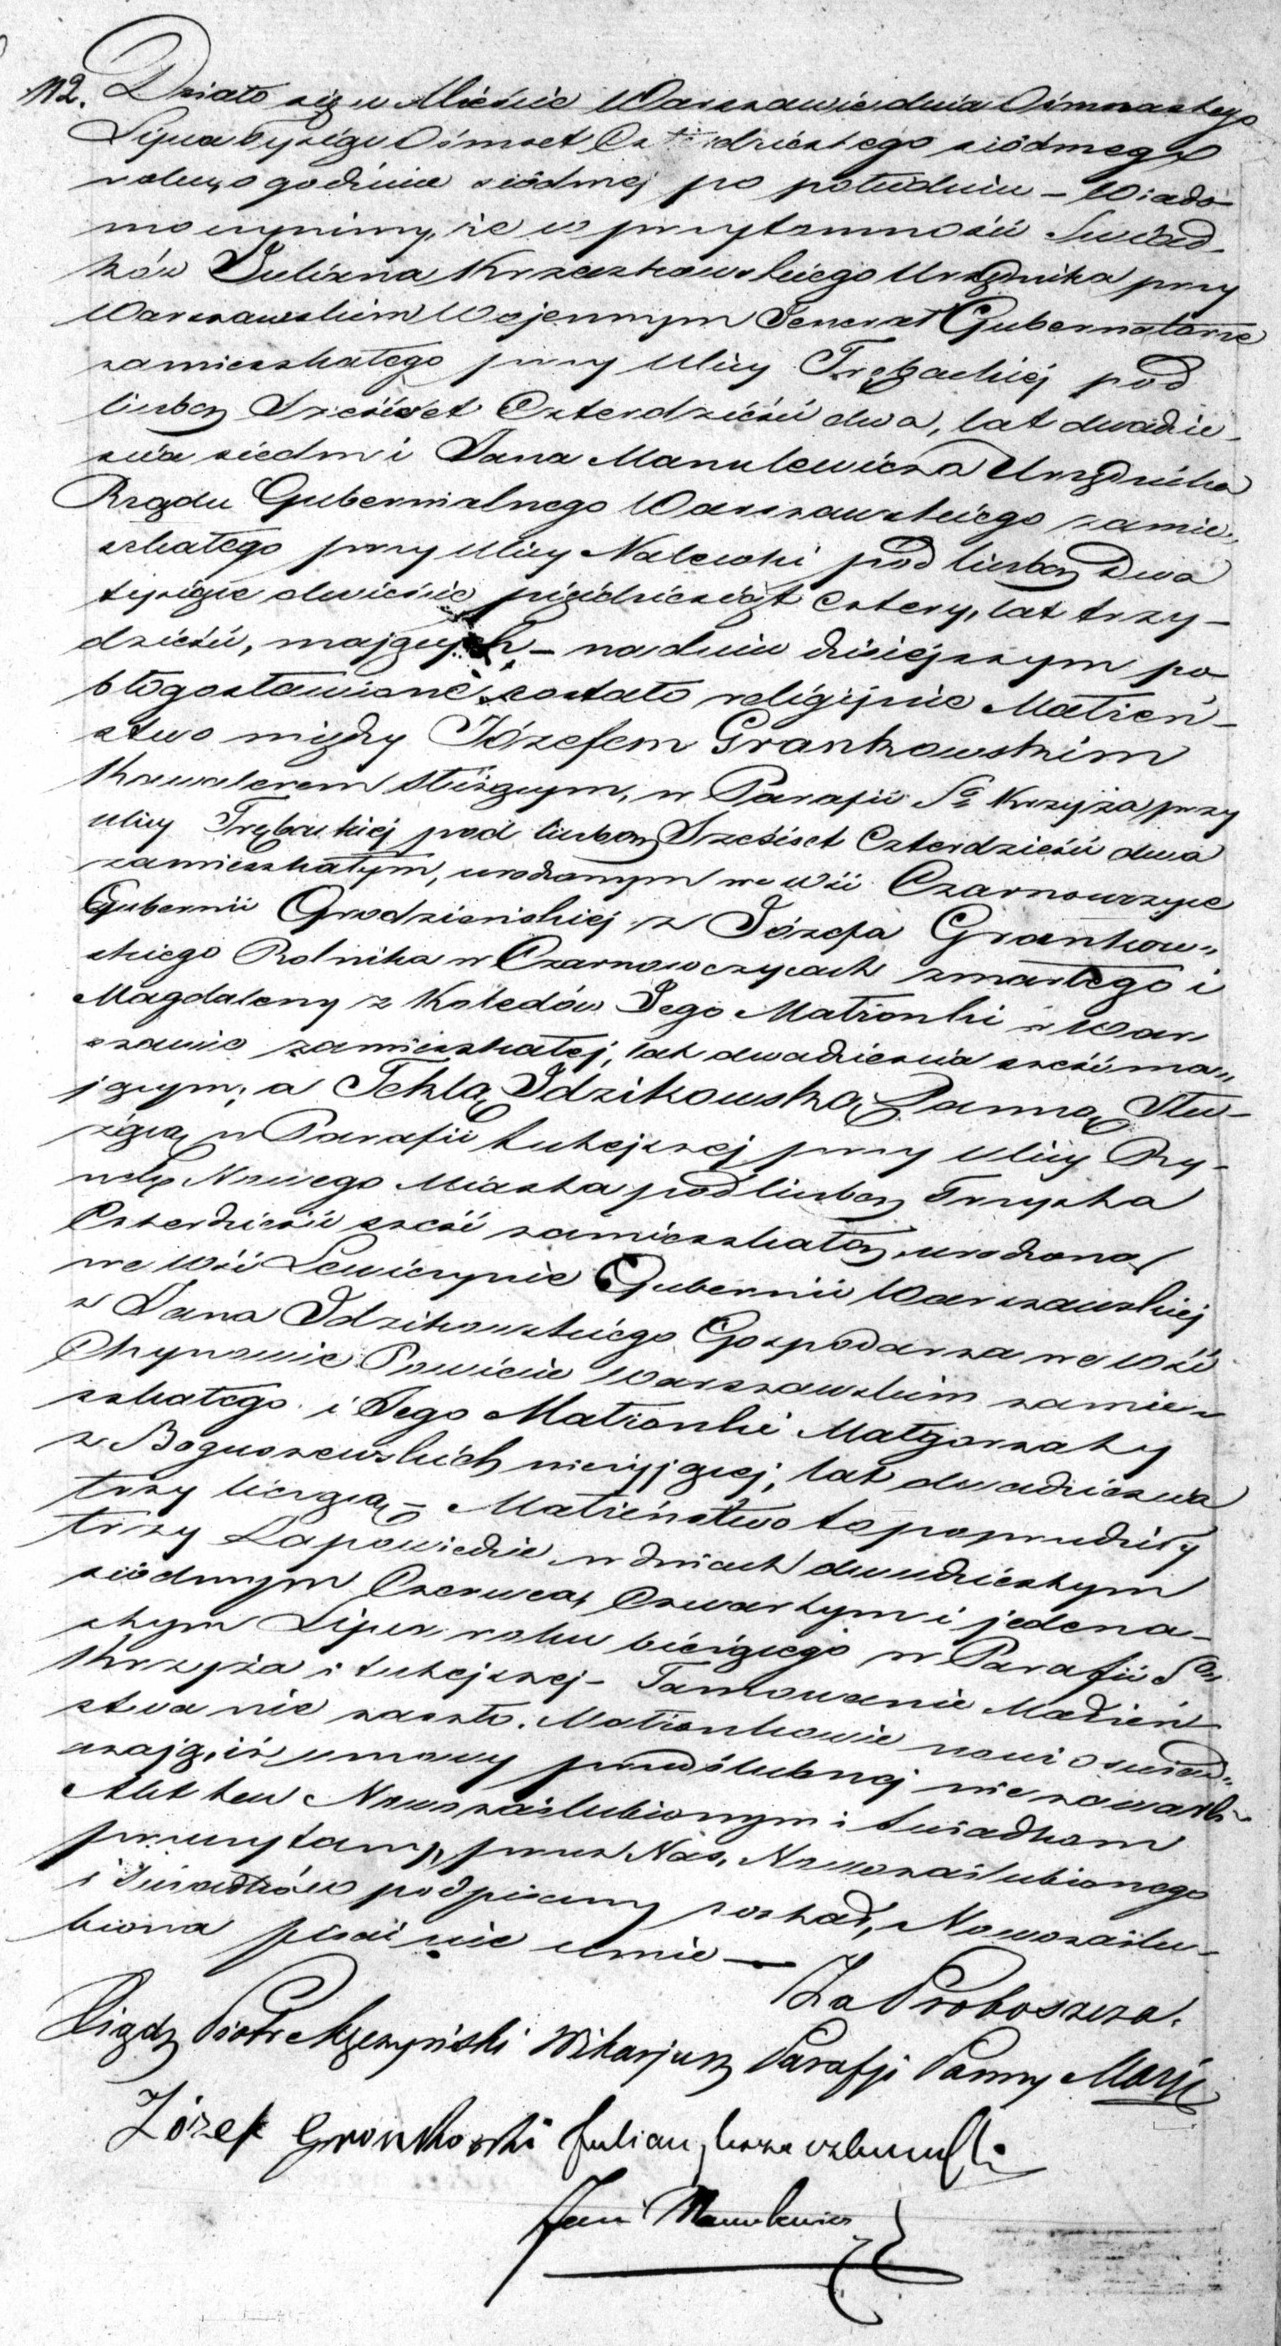 112. Działo się w Mieście Warszawie dnia Ośmnastego
Lipca tysiąc Ośmset Czterdziestego siódmego
roku, o godzinie siódmej po południu – Wiado-
mo czynimy, że w przytomności Świad-
ków Juliana Krzeczkowskiego Urzędnika przy
Warszawskim Wojennym Jenerał Gubernatorze
zamieszkałego przy Ulicy Trębackiej pod
liczbą Sześćset Czterdzieści dwa, lat dwadzie-
ścia siedm i Jana Manulewicza Urzędnika
Rządu Gubernialnego Warszawskiego zamie-
szkałego przy Ulicy Nalewki pod liczbą Dwa
tysiące dwieście pięćdziesiąt cztery, lat trzy-
dzieści, mających – na dniu dzisiejszym po
błogosławione zostało religijnie Małżeń-
stwo między Józefem Grankowskim
Kawalerem służącym, w Parafii Sgo Krzyża przy
ulicy Trębackiej pod liczbą Sześćset Czterdzieści dwa
zamieszkałym, urodzonym we Wsi Czarnowczyce
Gubernii Grodzieńskiej z Józefa Grankow-
skiego Rolnika w Czarnowczycach zmarłego i
Magdaleny z Koledów Jego Małżonki w War
szawie zamieszkałej, lat dwadzieścia sześć ma-
jącym; a Teklą Idzikowską Panną Słu-
żącą w Parafii tutejszej przy Ulicy Ry-
nek Nowego Miasta pod liczbą Trzysta
Czterdzieści sześć zamieszkałą, urodzoną
we Wsi Lewiczynie Gubernii Warszawskiej
z Jana Idzikowskiego Gospodarza we Wsi
Chynowie Powiecie Warszawskim zamie-
szkałego i Jego Małżonki Małgorzaty
z Boguszewskich nieżyjącej, lat dwadzieścia
trzy liczącą – Małżeństwo to poprzedziły
trzy Zapowiedzie w dniach dwudziestym
siódmym Czerwca, Czwartym i jedena-
stym Lipca roku bieżącego w Parafii Sgo
Krzyża i tutejszej – Tamowanie Małżeń
stwa nie zaszło. Małżonkowie nowi oświad-
czają, iż umowy przedślubnej nie zawarli
Akt ten Nowozaślubionym i Świadkom
przeczytany, przez Nas, Nowozaślubionego
i Świadków podpisany został, Nowozaślu-
biona pisać nie umie —
Za Proboszcza.
Xiądz Piotr Wikarjusz Parafji Panny Marji
Józef Gronkoski Julian Krzeczkowski
Jan Manulewicz